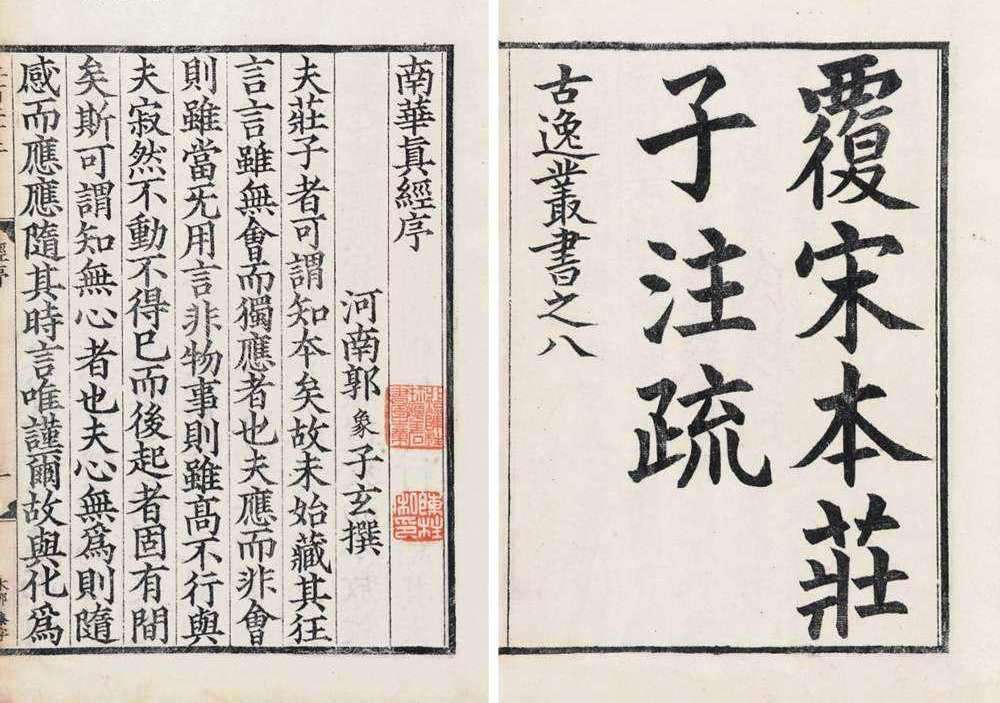 覆宋本莊
子注疏
古逸叢書之八
南華眞經序
河南郭象子玄撰
夫莊子者可謂知夲矣故未始藏其狂
言言雖無會而獨應者也夫應而非會
則雖當无用言非物事則雖高不行與
夫寂然不動不得已而後起者固有間
矣斯可謂知無心者也夫心無爲則隨
感而應應隨其時言唯謹爾故與化爲